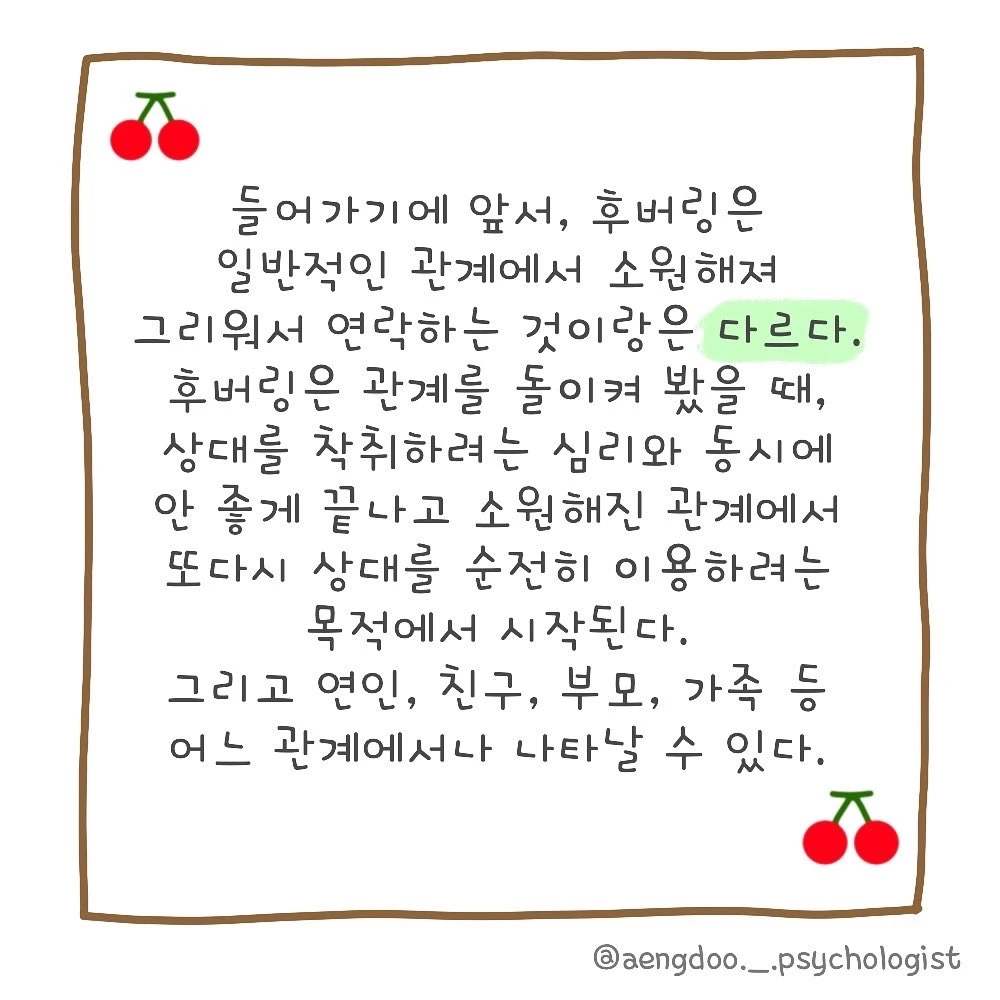 들어가기에 앞서, 후버링은
일반적인 관계에서 소원해져
그리워서 연락하는 것이랑은 다르다.
후버링은 관계를 돌이켜 봤을 때,
상대를 착취하려는 심리와 동시에
안 좋게 끝나고 소원해진 관계에서
또다시 상대를 순전히 이용하려는
목적에서 시작된다.
그리고 연인, 친구, 부모, 가족 등
어느 관계에서나 나타날 수 있다.
@aengdoo._.psychologist